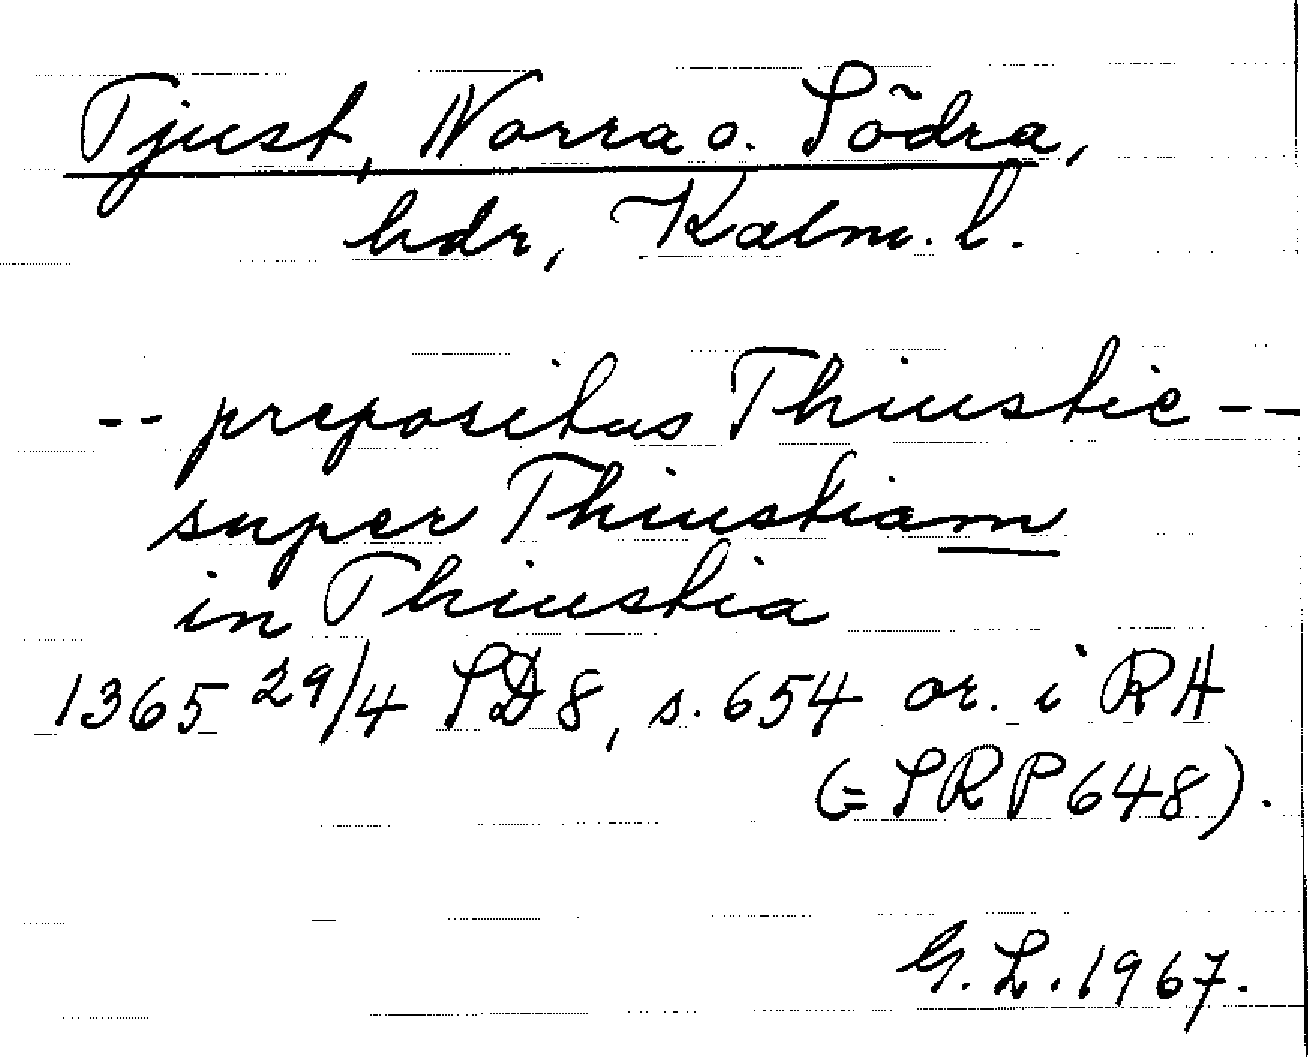 Tjust, Norra o. Södra,
hdr, Kalm. l.
-- prepositus Thiustie --
super Thiustiam
in Thiustia
1365 29/4 SD 8, s. 654 or. i RA
(= SRP 648).
G. L. 1967.